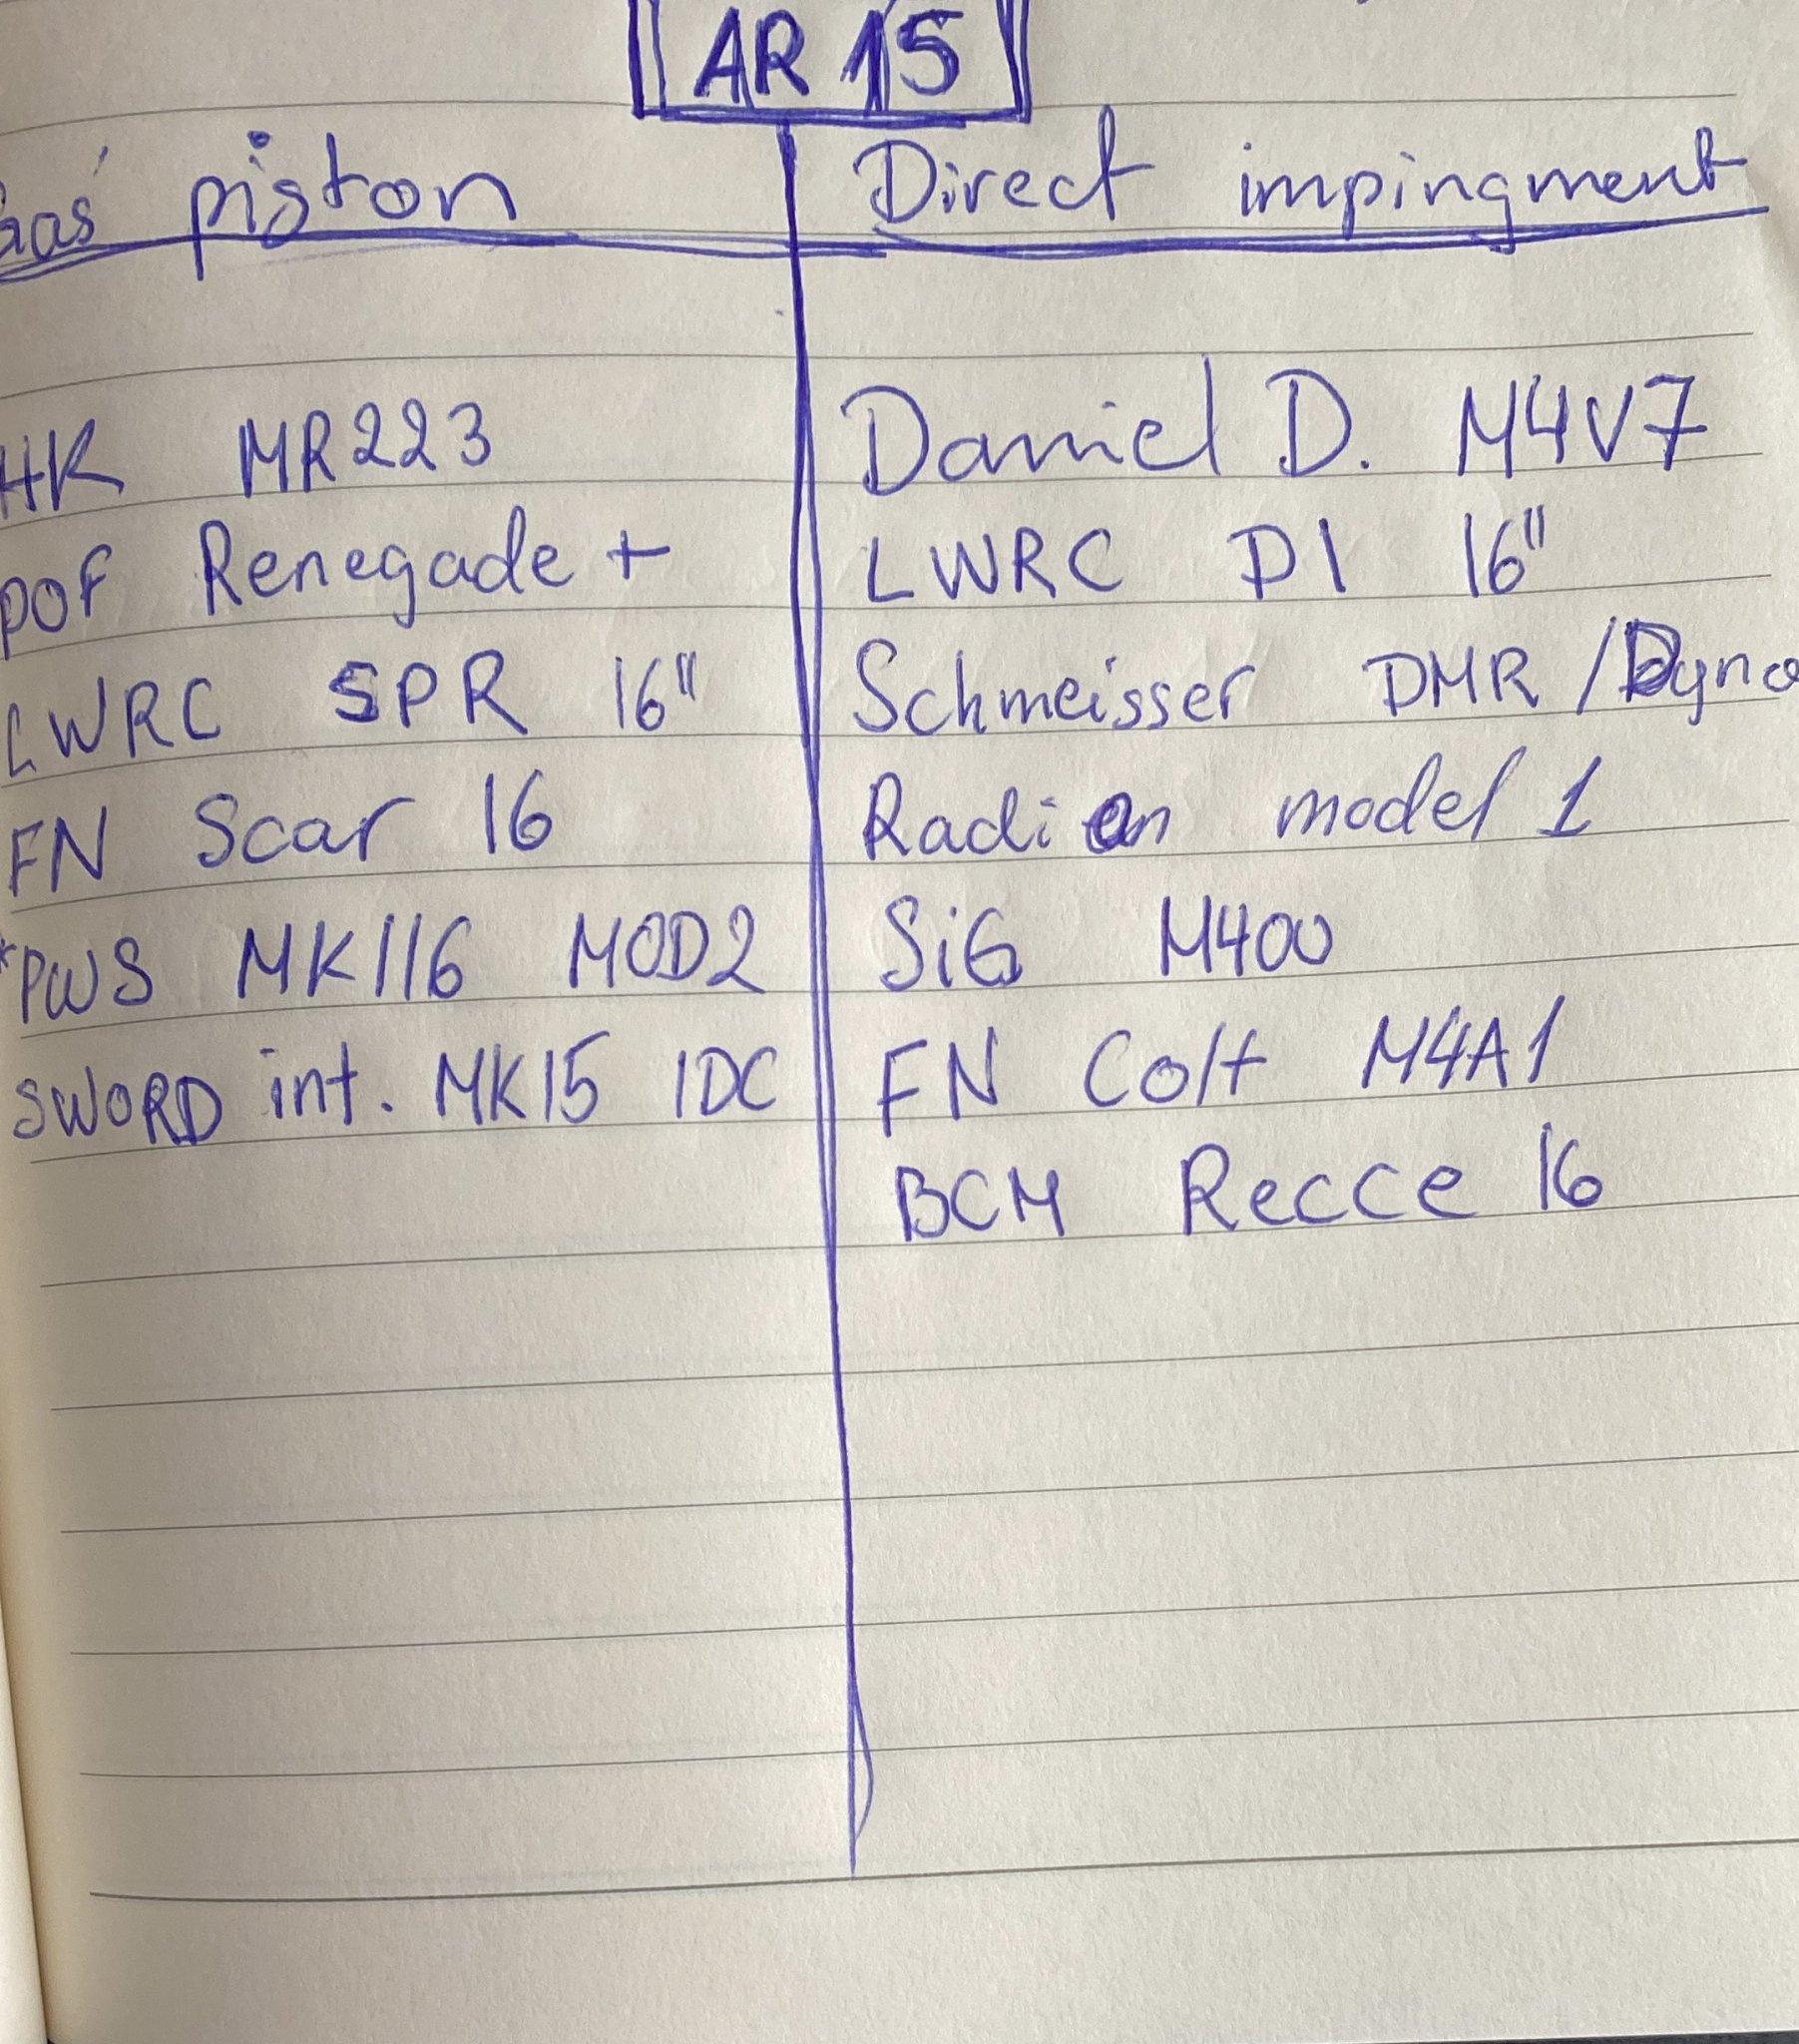 AR 15
Gas piston
Direct impingment
HK MR223
POF Renegade +
LWRC SPR 16"
FN Scar 16
*PWS MK116 MOD2
SWORD int. MK15 IDC
Daniel D. M4V7
LWRC DI 16"
Schmeisser DMR / Dyna
Radian model 1
SiG M400
FN Colt M4A1
BCM Recce 16